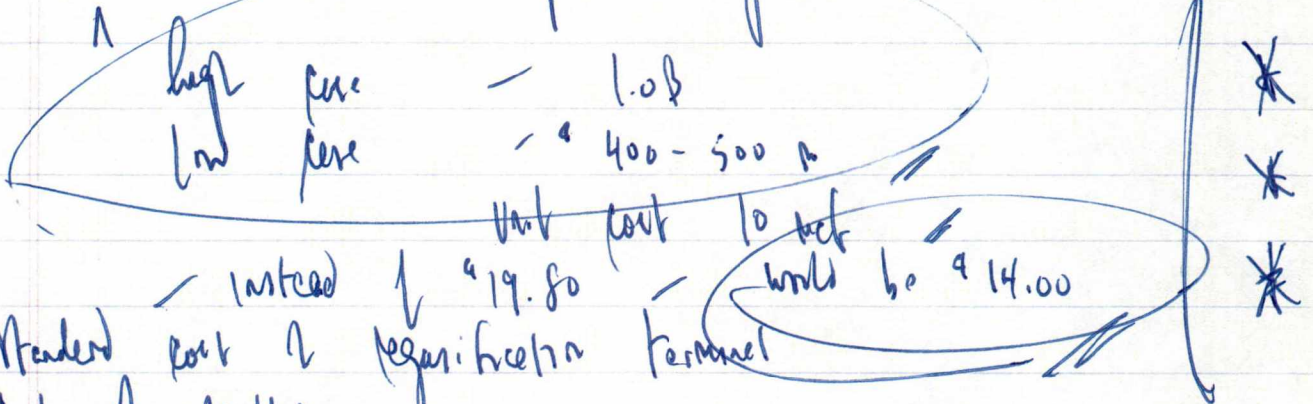 high case - 1.0B
low case - $ 400 - 500 m
unit cost to
- instead of $19.80 - would be $14.00
Standard cost of regasification terminal